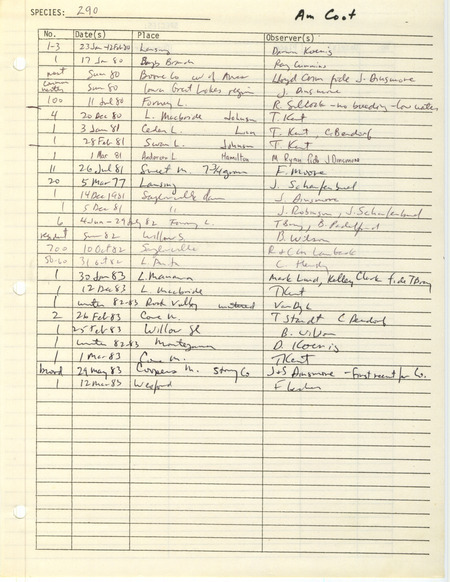 SPECIES: 290 Am Coot
No. Date(s) Place Observer(s)
1-3 23 Jan-12 Feb 80 Lansing Koenig
1 17 Jan 80 Bays Branch Ray Cummins
Sum 80 Boone Co w of Ames Lloyd Crim fide J. Dinsmore
common Sum 80 Iowa Great Lakes region J. Dinsmore
100 11 Jul 80 Forney L. R. Silcock - no breeding - low water
4 20 Dec 80 L. Macbride Johnson T. Kent
1 3 Jan 81 Cedar L. Linn T. Kent, C. Bendorf
1 28 Feb 81 Swan L. Johnson T. Kent
1 1 Mar 81 Anderson L Hamilton M. Ryan fide J Dinsmore
11 26 Jul 81 Sweet M. 7-3/4 grown F. Moore
20 5 Mar 77 Lansing J. Schaufenbuel
1 14 Dec 1981 Saylorville dam J. Dinsmore
1 5 Dec 81 " J. Robinson, J. Schaufenbuel
6 4 Jun - 29 July 82 Forney L. T Bray, B. Padelford
Sum 82 Willow S B. Wilson
700 10 Oct 82 Saylorville R+C
50-60 31 Oct 82 L Anita C. Henely
1 30 Jan 83 L. Manawa Mark Lund, Kelley Clark fide T Bray
1 12 Dec 83 L. Macbride T Kent
1 winter 82-83 Rock Valley wintered Van Dyk
2 26 Feb 83 Cone M. T Staudt C Bendorf
1 25 Feb 83 Willow Sl B. Wilson
1 winter 82-83 Montezuma D. Koenig
1 1 Mar 83 Cone M. T Kent
brood 29 May 83 Coopers M. Story Co J+S Dinsmore - First recent for Co.
1 12 Mar 83 Wexford F Lesher